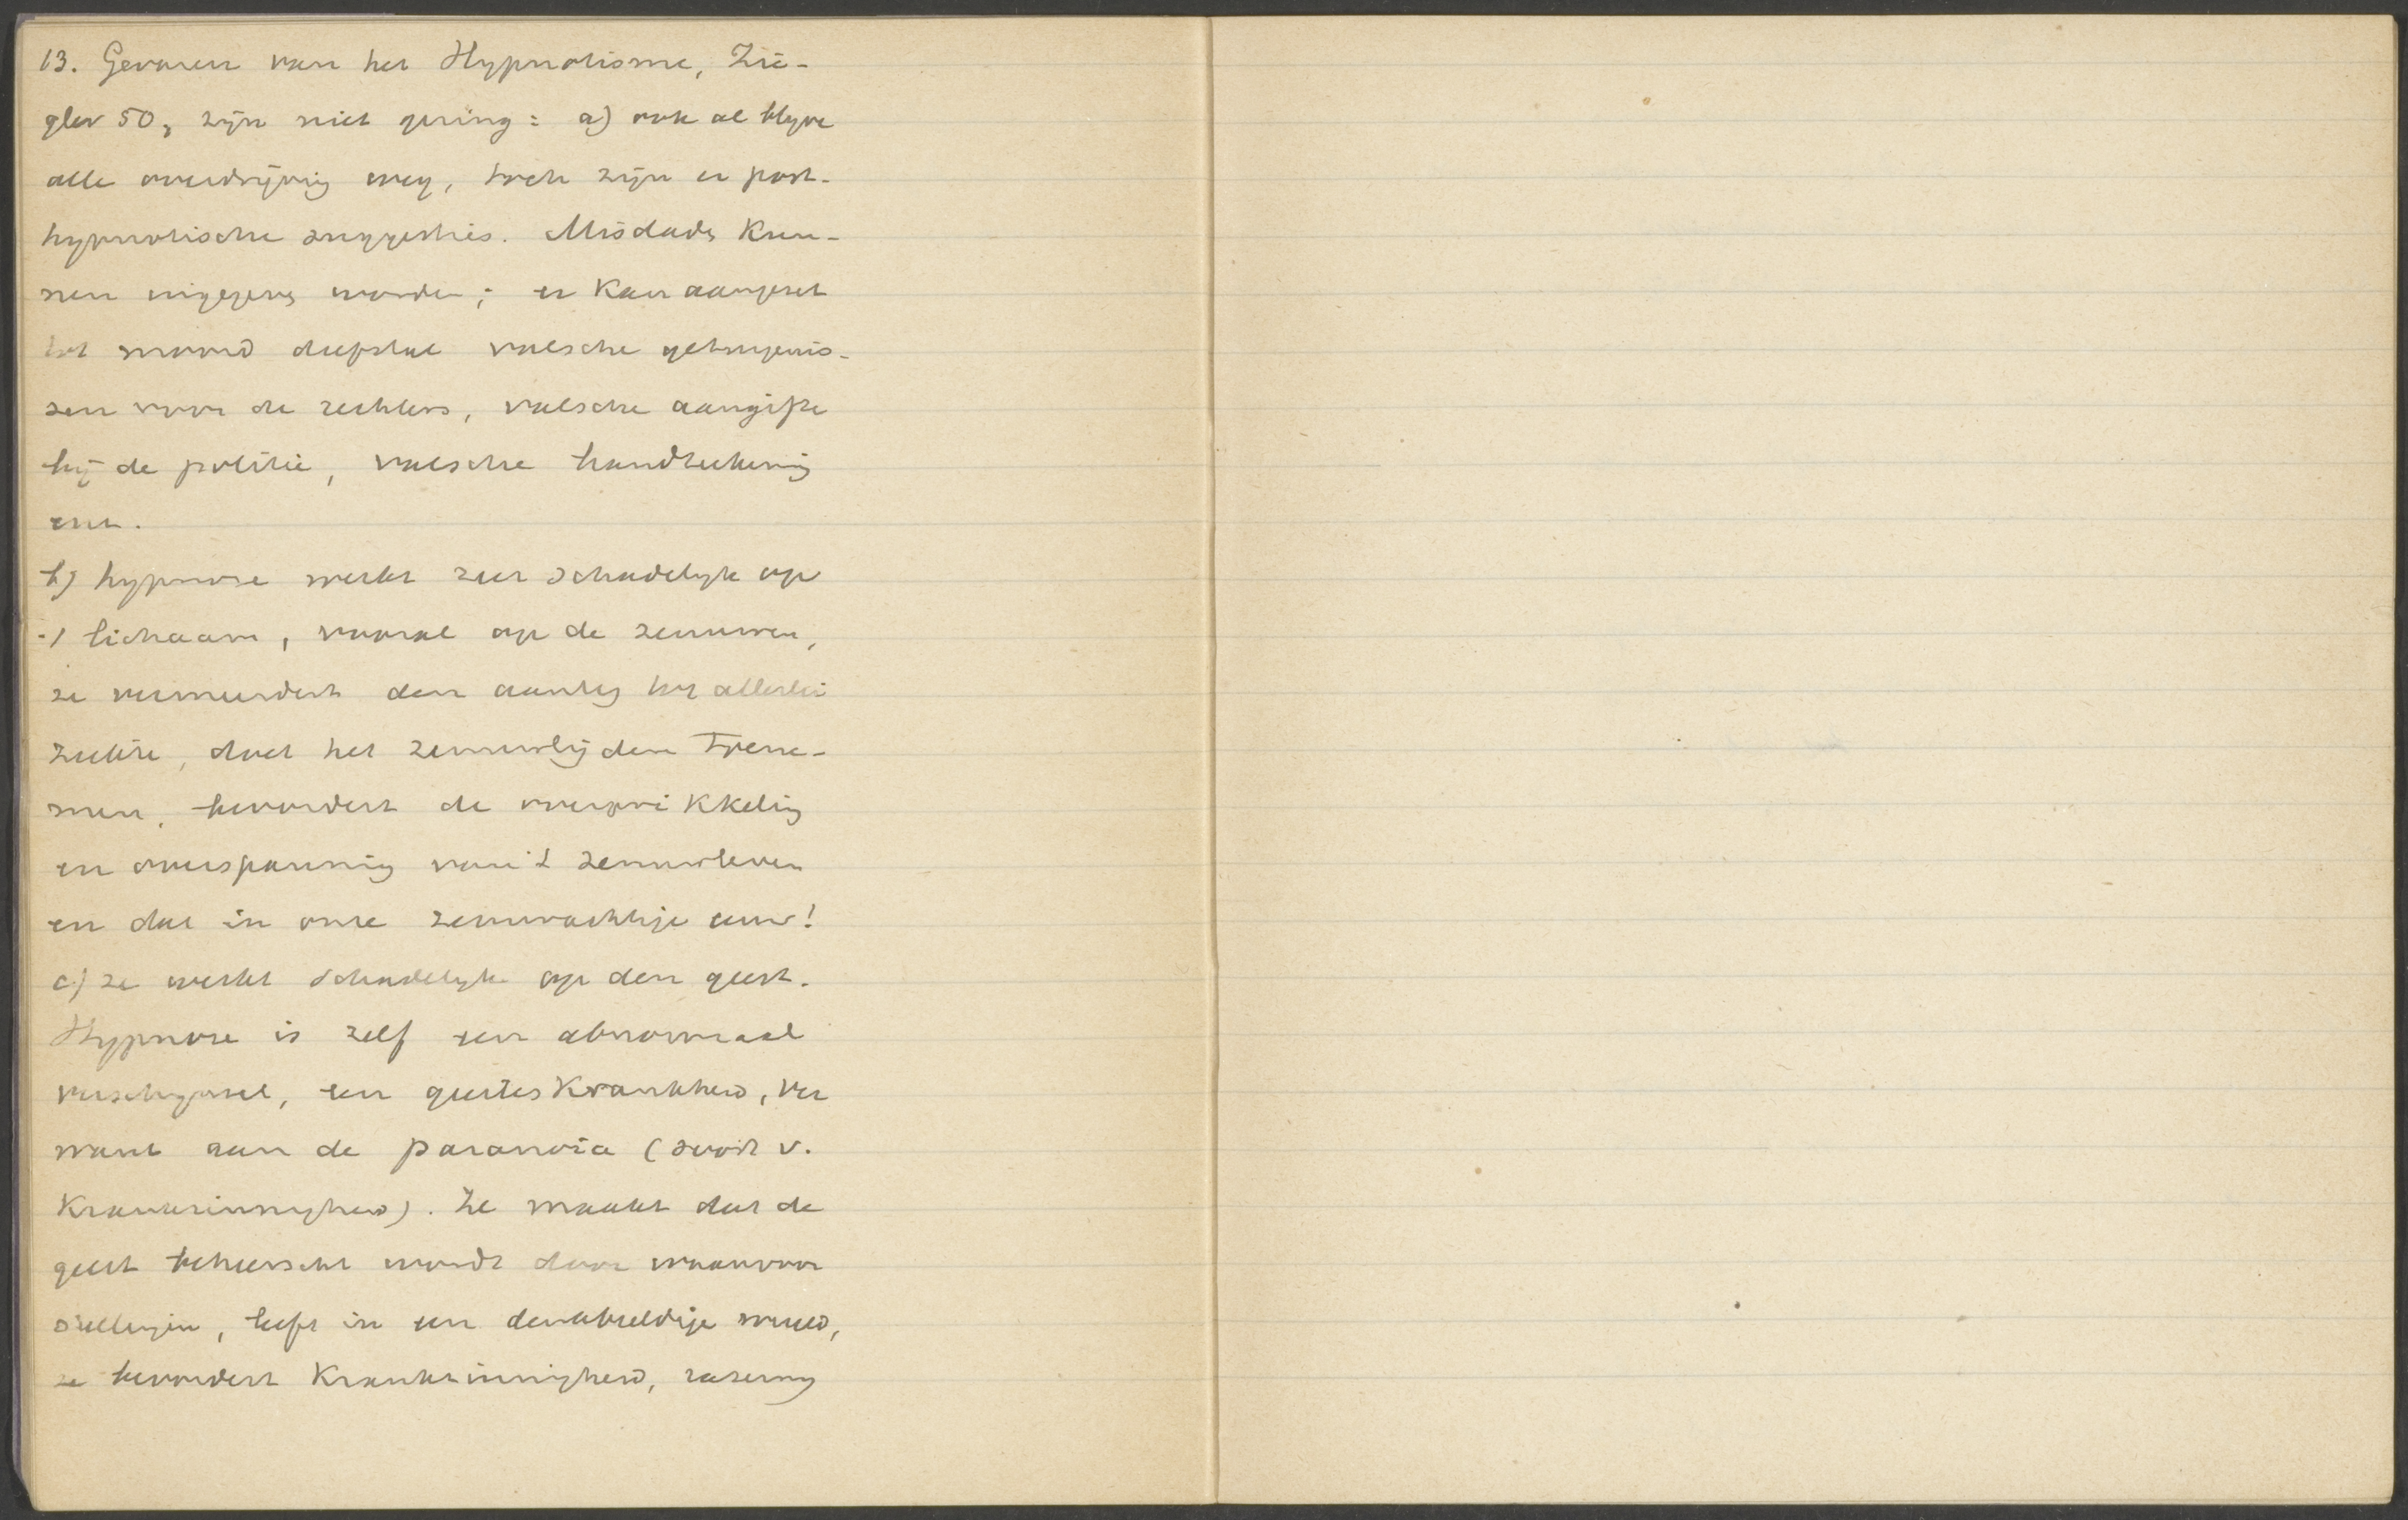 13. Gevaren van het Hypnotisme, Zie-
gler 50, zijn niet gering: a) ook al blijve
alle overdrijving weg, toch zijn er post-
hypnotische suggesties. Misdaden kun-
nen ingegeven worden; er kan aangezet
tot moord diefstal valsche getuigenis-
sen voor de rechters, valsche aangifte
bij de politie, valsche handteekening
enz.
b) hypnose werkt zeer schadelijk op
't lichaam, vooral op de zenuwen,
ze vermeerdert den aanleg tot allerlei
ziekte, doet het zenuwlijden toene-
men, bevordert de overprikkeling
en overspanning van 't zenuwleven
en dat in onze zenuwachtige eeuw!
c) ze werkt schadelijk op den geest.
Hypnose is zelf een abnormaal
verschijnsel, een geestes krankheid, ver
want aan de paranoia (soort v.
Krankzinnigheid). Ze maakt dat de
geest beheerscht wordt door waanvoor
stellingen, leeft in een denkbeeldige wereld,
ze bevordert Krankzinnigheid, razerny